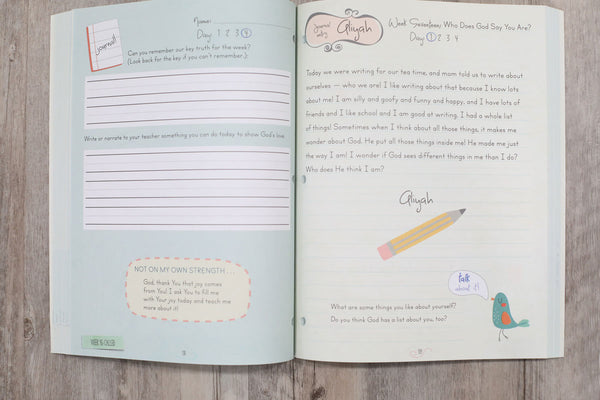 journal!
Name:
Day: 1 2 3 4
Can you remember our key truth for the week?
(Look back for the key if you can't remember.):
Write or narrate to your teacher something you can do today to show God's love.
NOT ON MY OWN STRENGTH . . .
God, thank You that joy comes
from You! I ask You to fill me
with Your joy today and teach me
more about it!
journal
entry
Aliyah
Week Seventeen: Who Does God Say You Are?
Day: 1 2 3 4
Today we were writing for our tea time, and mom told us to write about
ourselves — who we are! I like writing about that because I know lots
about me! I am silly and goofy and funny and happy, and I have lots of
friends and I like school and I am good at writing. I had a whole list
of things! Sometimes when I think about all those things, it makes me
wonder about God. He put all those things inside me! He made me just
the way I am! I wonder if God sees different things in me than I do?
Who does He think I am?
Aliyah
talk
about it!
What are some things you like about yourself?
Do you think God has a list about you, too?